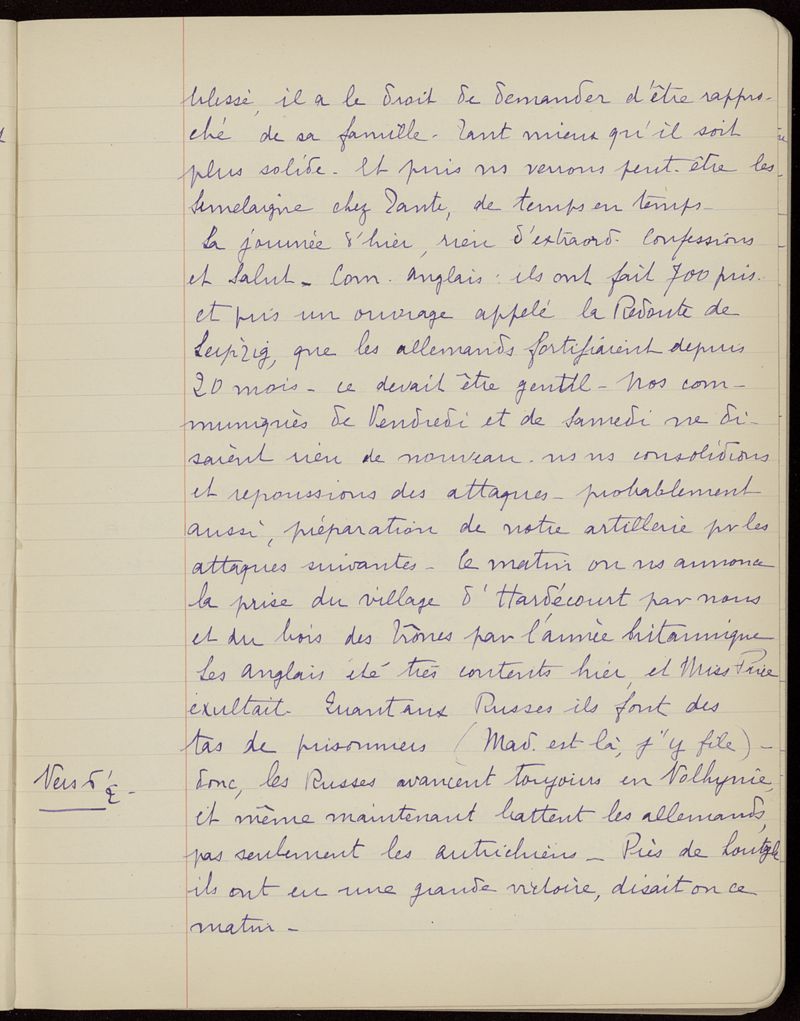 blessé, il a le droit de demander d'être rappro-
ché de sa famille. Tant mieux qu'il soit
plus solide. Et puis ns verrons peut-être les
Semelaigne chez Tante, de temps en temps_
La journée d'hier, rien d'extraord. Confessions
et Salut_ Com. anglais : ils ont fait 700 pris.
et pris un ouvrage appelé la Redoute de
Leipzig, que les allemands fortifiaient depuis
20 mois_ ce devait être gentil_ Nos com-
muniqués de Vendredi et de Samedi ne di-
saient rien de nouveau. ns ns consolidions
et repoussions des attaques_ probablement
aussi, préparation de notre artillerie pr les
attaques suivantes_ Ce matin on ns annonce
la prise du village d'Hardécourt par nous
et du bois des Trônes par l'armée britannique
Les anglais été très contents hier, et Miss Price
exultait. Quant aux Russes ils font des
tas de prisonniers (Mad. est là, j'y file)_
Vers
donc, les Russes avancent toujours en Volhynie,
et même maintenant battent les allemands,
pas seulement les autrichiens_ Près de
ils ont eu une grande victoire, disait on ce
matin_